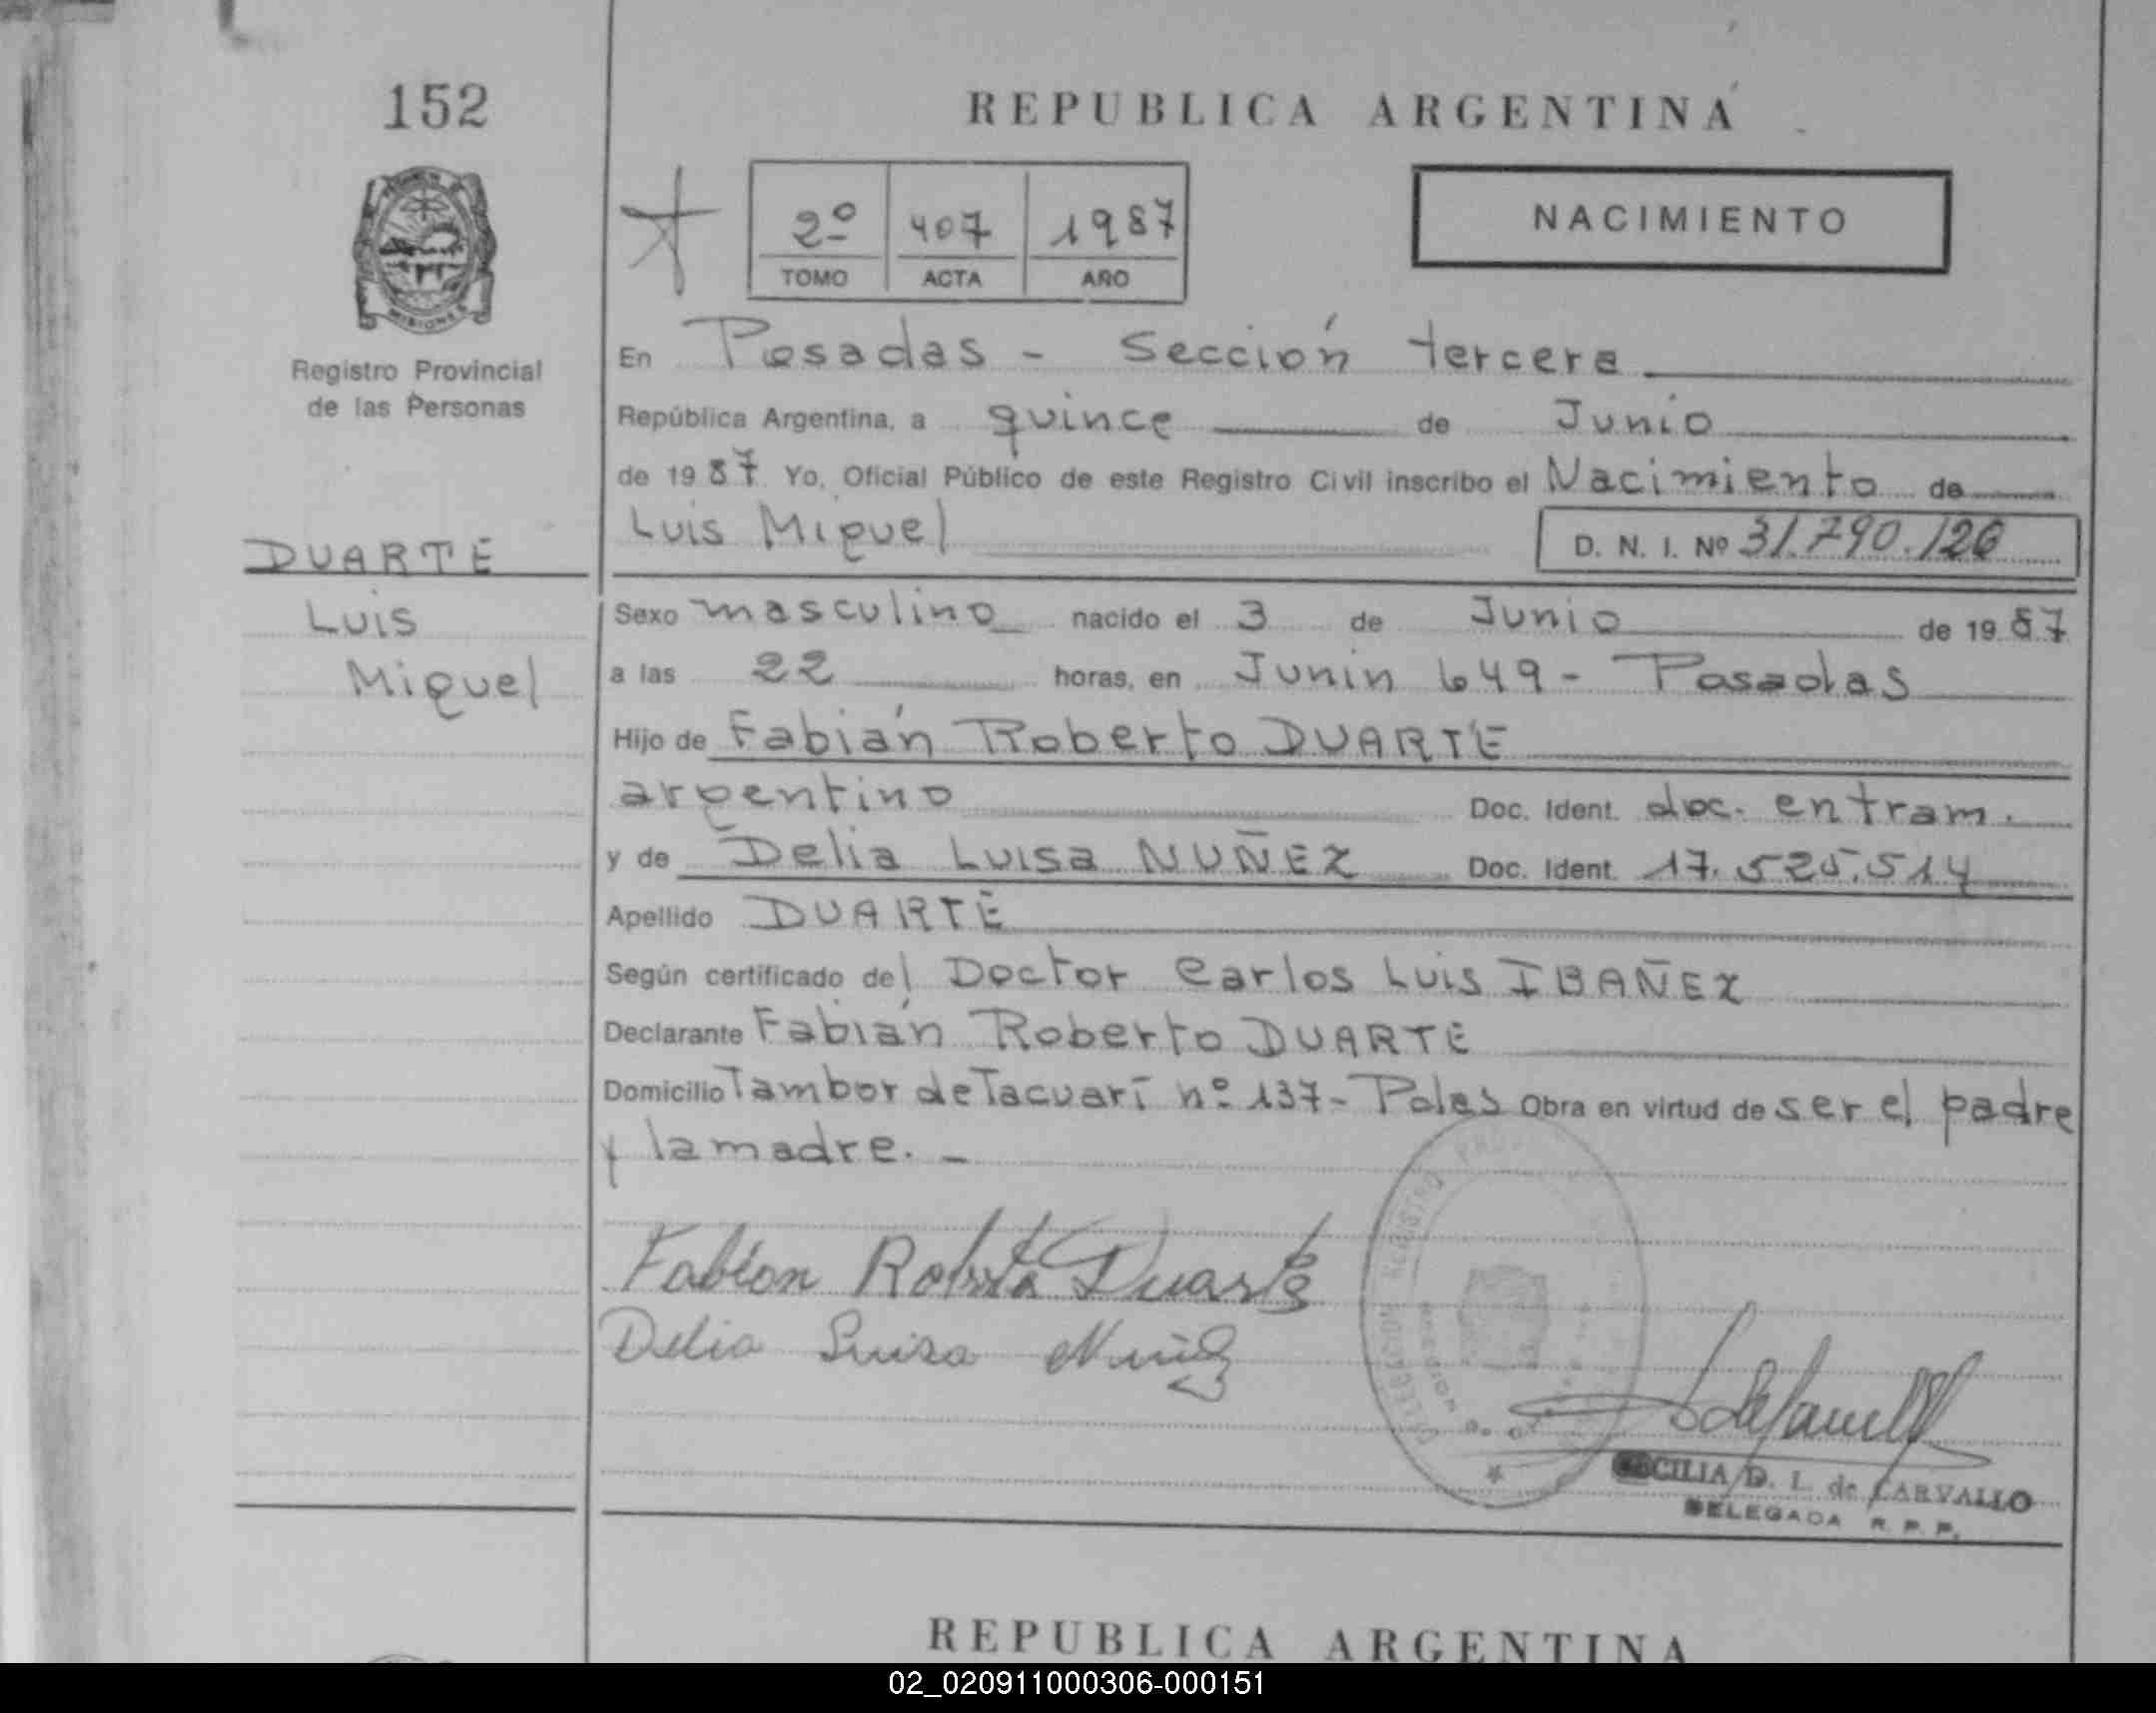 152
REPUBLICA ARGENTINA
2º 407 1987
TOMO ACTA AÑO
NACIMIENTO
MISIONES
Registro Provincial
de las Personas
En Posadas - Sección tercera
República Argentina, a quince de Junio
de 1987 Yo, Oficial Público de este Registro Civil inscribo el Nacimiento de
Luis Miguel D. N. I. Nº 31.790.126
DUARTE
Luis
Miguel
Sexo masculino nacido el 3 de Junio de 1987
a las 22 horas, en Junin 649 - Posadas
Hijo de Fabián Roberto DUARTE
argentino Doc. Ident. doc. entram.
y de Delia Luisa NUÑEZ Doc. Ident. 17.525.514
Apellido DUARTE
Según certificado del Doctor Carlos Luis IBAÑEZ
Declarante Fabián Roberto DUARTE
Domicilio Tambor de Tacuarí nº 137 - Pdas Obra en virtud de ser el padre
y la madre. -
Fabian Roberto Duarte
Delia Luisa Nuñez
CECILIA D. L. de CARVALLO
DELEGADA R. P. P.
REPUBLICA ARGENTINA
02_020911000306-000151